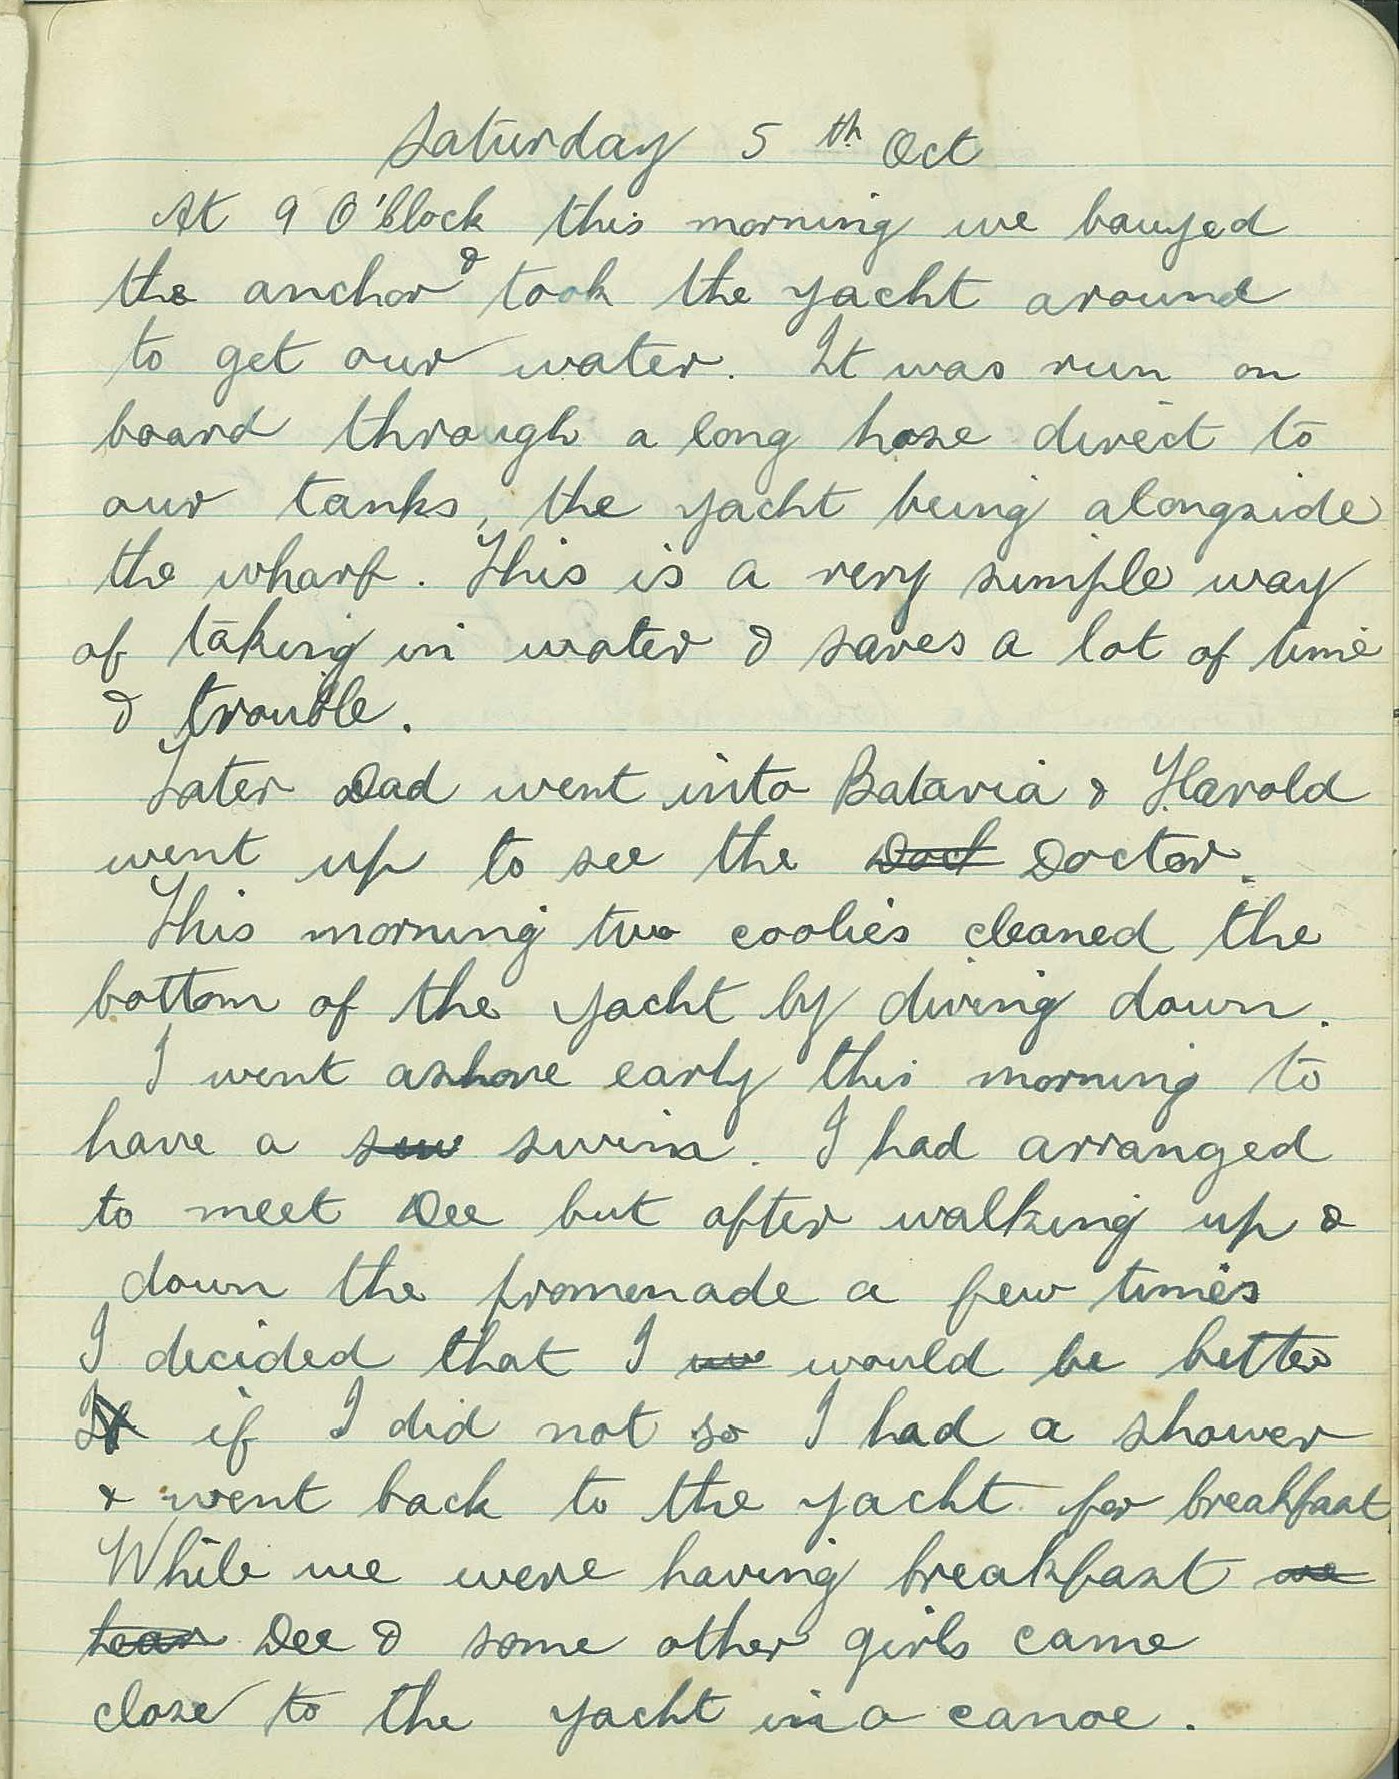 Saturday 5th Oct
At 9 O'Clock this morning we bouyed
the anchor & took the yacht around
to get our water. It was run on
board through a long hose direct to
our tanks, the yacht being alongside
the wharf. This is a very simple way
of taking in water & saves a lot of time
& trouble.
Later Dad went into Batavia & Harold
went up to see the Doct Doctor.
This morning two coolies cleaned the
bottom of the yacht by diving down.
I went ashore early this morning to
have a sw swim. I had arranged
to meet Dee but after walking up &
down the promenade a few times
I decided that I w would be better
If if I did not so I had a shower
& went back to the yacht for breakfast
While we were having breakfast we
hear Dee & some other girls came
close to the yacht in a canoe.